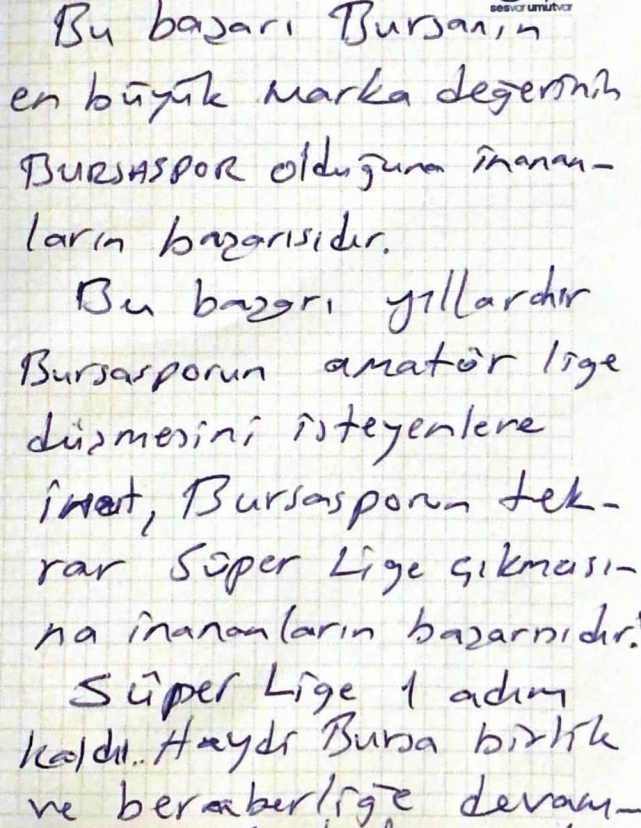 sesvarumutvar
Bu başarı Bursanın
en büyük marka değerinin
BURSASPOR olduğuna inanan-
ların başarısıdır.
Bu başarı yıllardır
Bursasporun amatör lige
düşmesini isteyenlere
inat, Bursasporun tek-
rar Süper Lige çıkması-
na inananların başarısıdır.
Süper Lige 1 adım
kaldı.. Haydi Bursa birlik
ve beraberliğe devam-